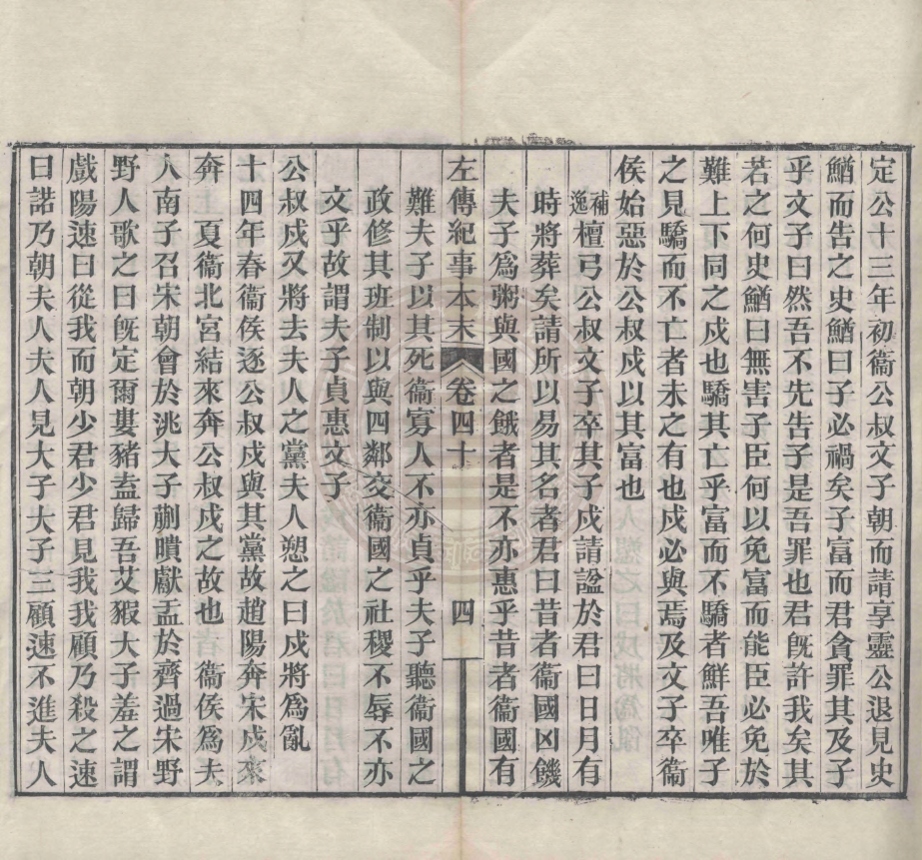 定公十三年初衞公叔文子朝而請享靈公退見史
鰌而告之史鰌曰子必禍矣子富而君貪罪其及子
乎文子曰然吾不先告子是吾罪也君旣許我矣其
若之何史鰌曰無害子臣何以免富而能臣必免於
難上下同之戍也驕其亡乎富而不驕者鮮吾唯子
之見驕而不亡者未之有也戍必與焉及文子卒衞
侯始惡於公叔戍以其富也
補逸檀弓公叔文子卒其子戍請諡於君曰日月有
時將葬矣請所以易其名者君曰昔者衞國凶饑
夫子爲粥與國之餓者是不亦惠乎昔者衞國有
左傳紀事本末 卷四十 四
難夫子以其死衞寡人不亦貞乎夫子聽衞國之
政修其班制以與四鄰交衞國之社稷不辱不亦
文乎故謂夫子貞惠文子
公叔戍又將去夫人之黨夫人愬之曰戍將爲亂
十四年春衞侯逐公叔戍與其黨故趙陽奔宋戍來
奔 夏衞北宮結來奔公叔戍之故也 衞侯爲夫
人南子召宋朝會於洮大子蒯聵獻盂於齊過宋野
野人歌之曰旣定爾婁豬盍歸吾艾豭大子羞之謂
戲陽速曰從我而朝少君少君見我我顧乃殺之速
曰諾乃朝夫人夫人見大子大子三顧速不進夫人